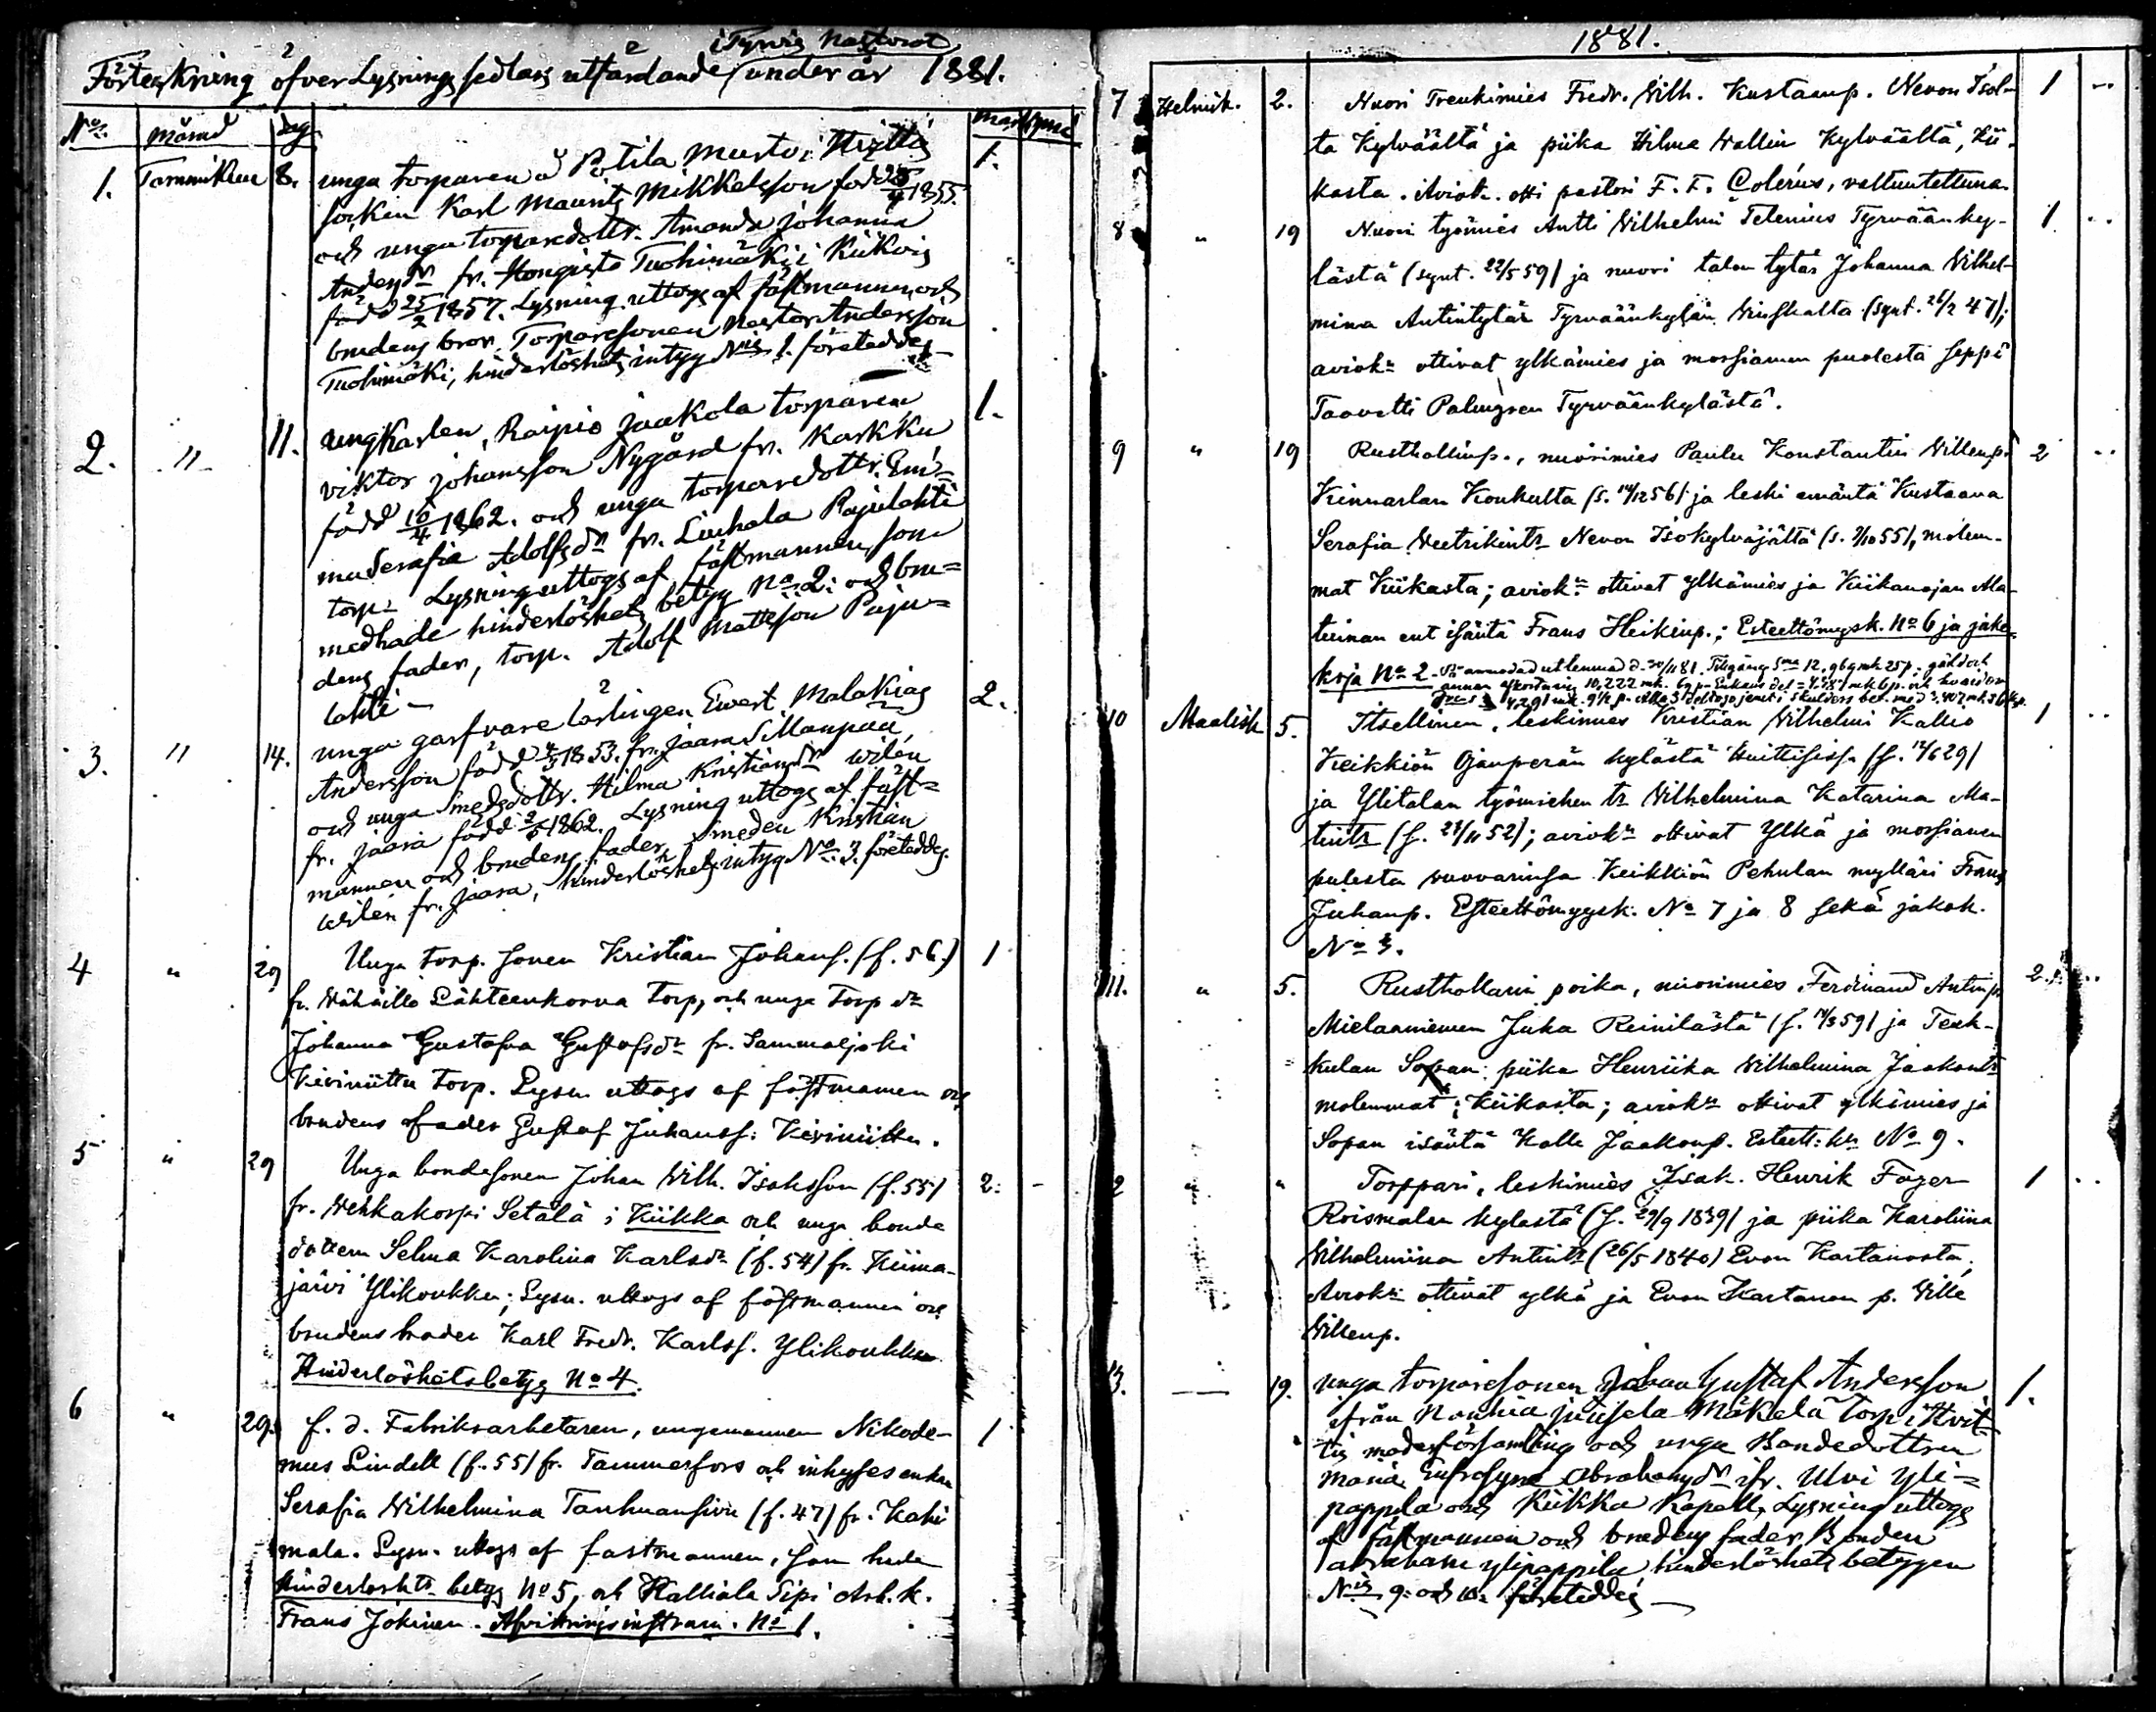 i Tyrvis Pastorat
Förteckning öfver Lysnings sedlars utfärdande under år 1881.
No. Månad dag Mark pni
1. Tammikuu 8. unga torparen å Potila Musto i Hvittis 1.
socken Karl Maurits Mikkelsson född 1855.
och unga torparedottr. Amanda Johanna
Andersdr fr. Hongisto Tuohimäki i Kiikois
född 25/2 1857. Lysning uttogs af fästmannen och
brudens bror, Torparesonen Nestor Andersson
Tuohimäki, hinderlöshets intyg No 1. företeddes
2. " 11. ungkarlen, Raipio Jaakola torparen 1.
Viktor Johansson Nygård fr. Karkku
född 10/4 1862. och unga torparedottr. Em=
ma Serafia Adolfsdr fr. Liuhala Pajulahti
torp. Lysning uttogs af fästmannen, som
medhade hinderlöshets betyg No 2: och bru=
dens fader, torp. Adolf Mattsson Paju=
lahti
3. " 14. unga garfvare lärlingen Evert Malakias 2.
Andersson född 1853. fr. Jaara Sillanpää
och unga Smedsdottr. Hilma Kristiansdr Wilén
fr. Jaara född 1862. Lysning uttogs af fäst=
mannen och brudens fader, Smeden Kristian
Wilén fr. Jaara, hinderlöshets intyg No 3. företeddes.
4 " 29 Unga torp. sonen Kristian Johans. (f. 56.) 1
fr. Lähteenkorva torp, och unga Torp dr
Johanna Gustafva Gustafsdr fr. Sammaljoki
Kiviniittu torp. Lysn. uttogs af fästmannen och
brudens fader Gustaf Juhanss: Kiviniittu.
5 " 29 Unga bondesonen Johan Wilh. Isaksson (f. 55) 2:
fr. Wehkakorpi Setälä i Kiikka och unga bonde
dottern Selma Karolina Karlsdr (f. 54) fr. Kiima-
järvi Ylikoukku; Lysn. uttogs af fästmannen och
brudens broder Karl Fredr. Karlss. Ylikoukku
Hinderlöshetsbetyg No 4.
6 " 29. f. d. Fabriksarbetaren, ungmannen Nikode- 1
mus Lindell (f. 55) fr. Tammerfors och inhyses enkan
Serafia Wilhelmina (f. 47) fr. Kahi
mala. Lysn. uttogs af fästmannen, som hade
hinderlösh:ts betyg No 5, och Kalliala Sipi Arb. k.
Frans Jokinen. Afvittrings instrum. No 1.
1881.
7 Helmik. 2. Nuori Trenkimies Fredr. Wilh. Kustaanp. Nevon Isol- 1 "
ta Kylväältä ja piika Hilma Wallin Kylväältä, Kii-
kasta. Aviok. otti pastori F. F. Colérus, valtuutettuna.
8 " 19 Nuori työmies Antti Wilhelmi Telenius Tyrväänky- 1 "
lästä (synt. 22/5 59) ja nuori talon tytär Johanna Wilhel-
mina Antintytär Tyrväänkylän (synt. 26/2 47);
aviok:n ottivat ylkämies ja morsiamen puolesta seppä
Taavetti Palmgren Tyrväänkylästä.
9 " 19 Rusthollinp., nuorimies Paulu Konstantin Villenp. 2 "
Kinnarlan Koukulta (s. 14/12 56) ja leski emäntä Kustaava
Serafia Nevon Isokylväjältä (s. 7/10 55), molem-
mat Kiikasta; aviok:n ottivat ylkämies ja Kiikanojan Ma-
tuinan ent isäntä Frans Heikinp.; Esteettömyysk. No 6 ja jako-
kirja No 2
10 Maalisk 5. Itsellinen, leskimies Kristian Wilhelmi Kalho 1 "
Keikkiön Ojanperän kylästä Huittisissa (s. 29)
ja Ylitalan työmiehen tr Wilhelmina Katarina Ma-
tintr (s. 28/11 52); aviok:n ottivat Ylkä ja morsiamen
pulesta Keikkiön Pehulan mylläri Frans
Juhanp. Esteettömyysk. No 7 ja 8 sekä jakok.
No 3.
11. " 5. Rusthollarin poika, nuorimies Ferdinand Antinp. 2. "
Mielaanniemen Juka Reinilästä (s. 59) ja Teuk-
kulan Sopan piika Henriika Wilhelmina Jaakontr
molemmat Kiikasta; aviok:n ottivat ylkämies ja
Sopan isäntä Kalle Jaakonp. Esteett:k:n No 9.
12 " " Torppari, leskimies Isak Henrik Fager 1 "
Roismalan kylästä (s. 29/9 1839) ja piika Karoliina
Wilhelmiina Antintr (26/5 1840) Evon Kartanosta;
Aviok:n ottivat ylkä ja Evon Kartanon p. Wille
Willenp.
13. — 19. unga torparesonen Johan Gustaf Andersson 1.
ifrån Nanhia Mäkelä torp i Hvit-
tis moderförsamling och unga Bondedottren
Maria Eufrosyne Abrahamsdr ifr. Ulvi Yli=
pappila och Kiikka Kapell, Lysning uttogs
af fästmannen och brudens fader, Bonden
Abraham Ylipappila hinderlöshets betygen
No:is 9: och 10: företeddes